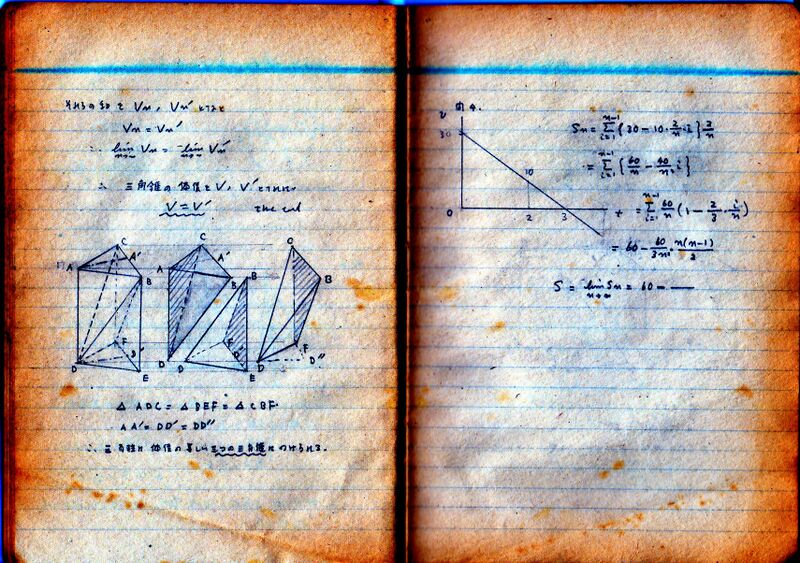 Vn, Vn' とすると
Vn = Vn'
∴ lim n→∞ Vn = lim n→∞ Vn'
∴ 三角錐の体積を V, V' とすれば
V = V' the end
C
A A'
B
F
D D'
E
C
A A'
B
D
B
F
D D'
E
C
B
F
D D''
△ADC = △DEF = △CBF
AA' = DD' = DD''
∴ 三角柱は体積の等しい三つの三角錐に分けられる.
v 図4.
30
10
0 2 3 t
Sn = Σ_{i=1}^{n-1} {30 - 10・2/n・i} 2/n
= Σ_{i=1}^{n-1} {60/n - 40/n² i}
= Σ_{i=1}^{n-1} 60/n (1 - 2/3・i/n)
= 60 - 60/3n²・n(n-1)/2
S = lim n→∞ Sn = 60 -